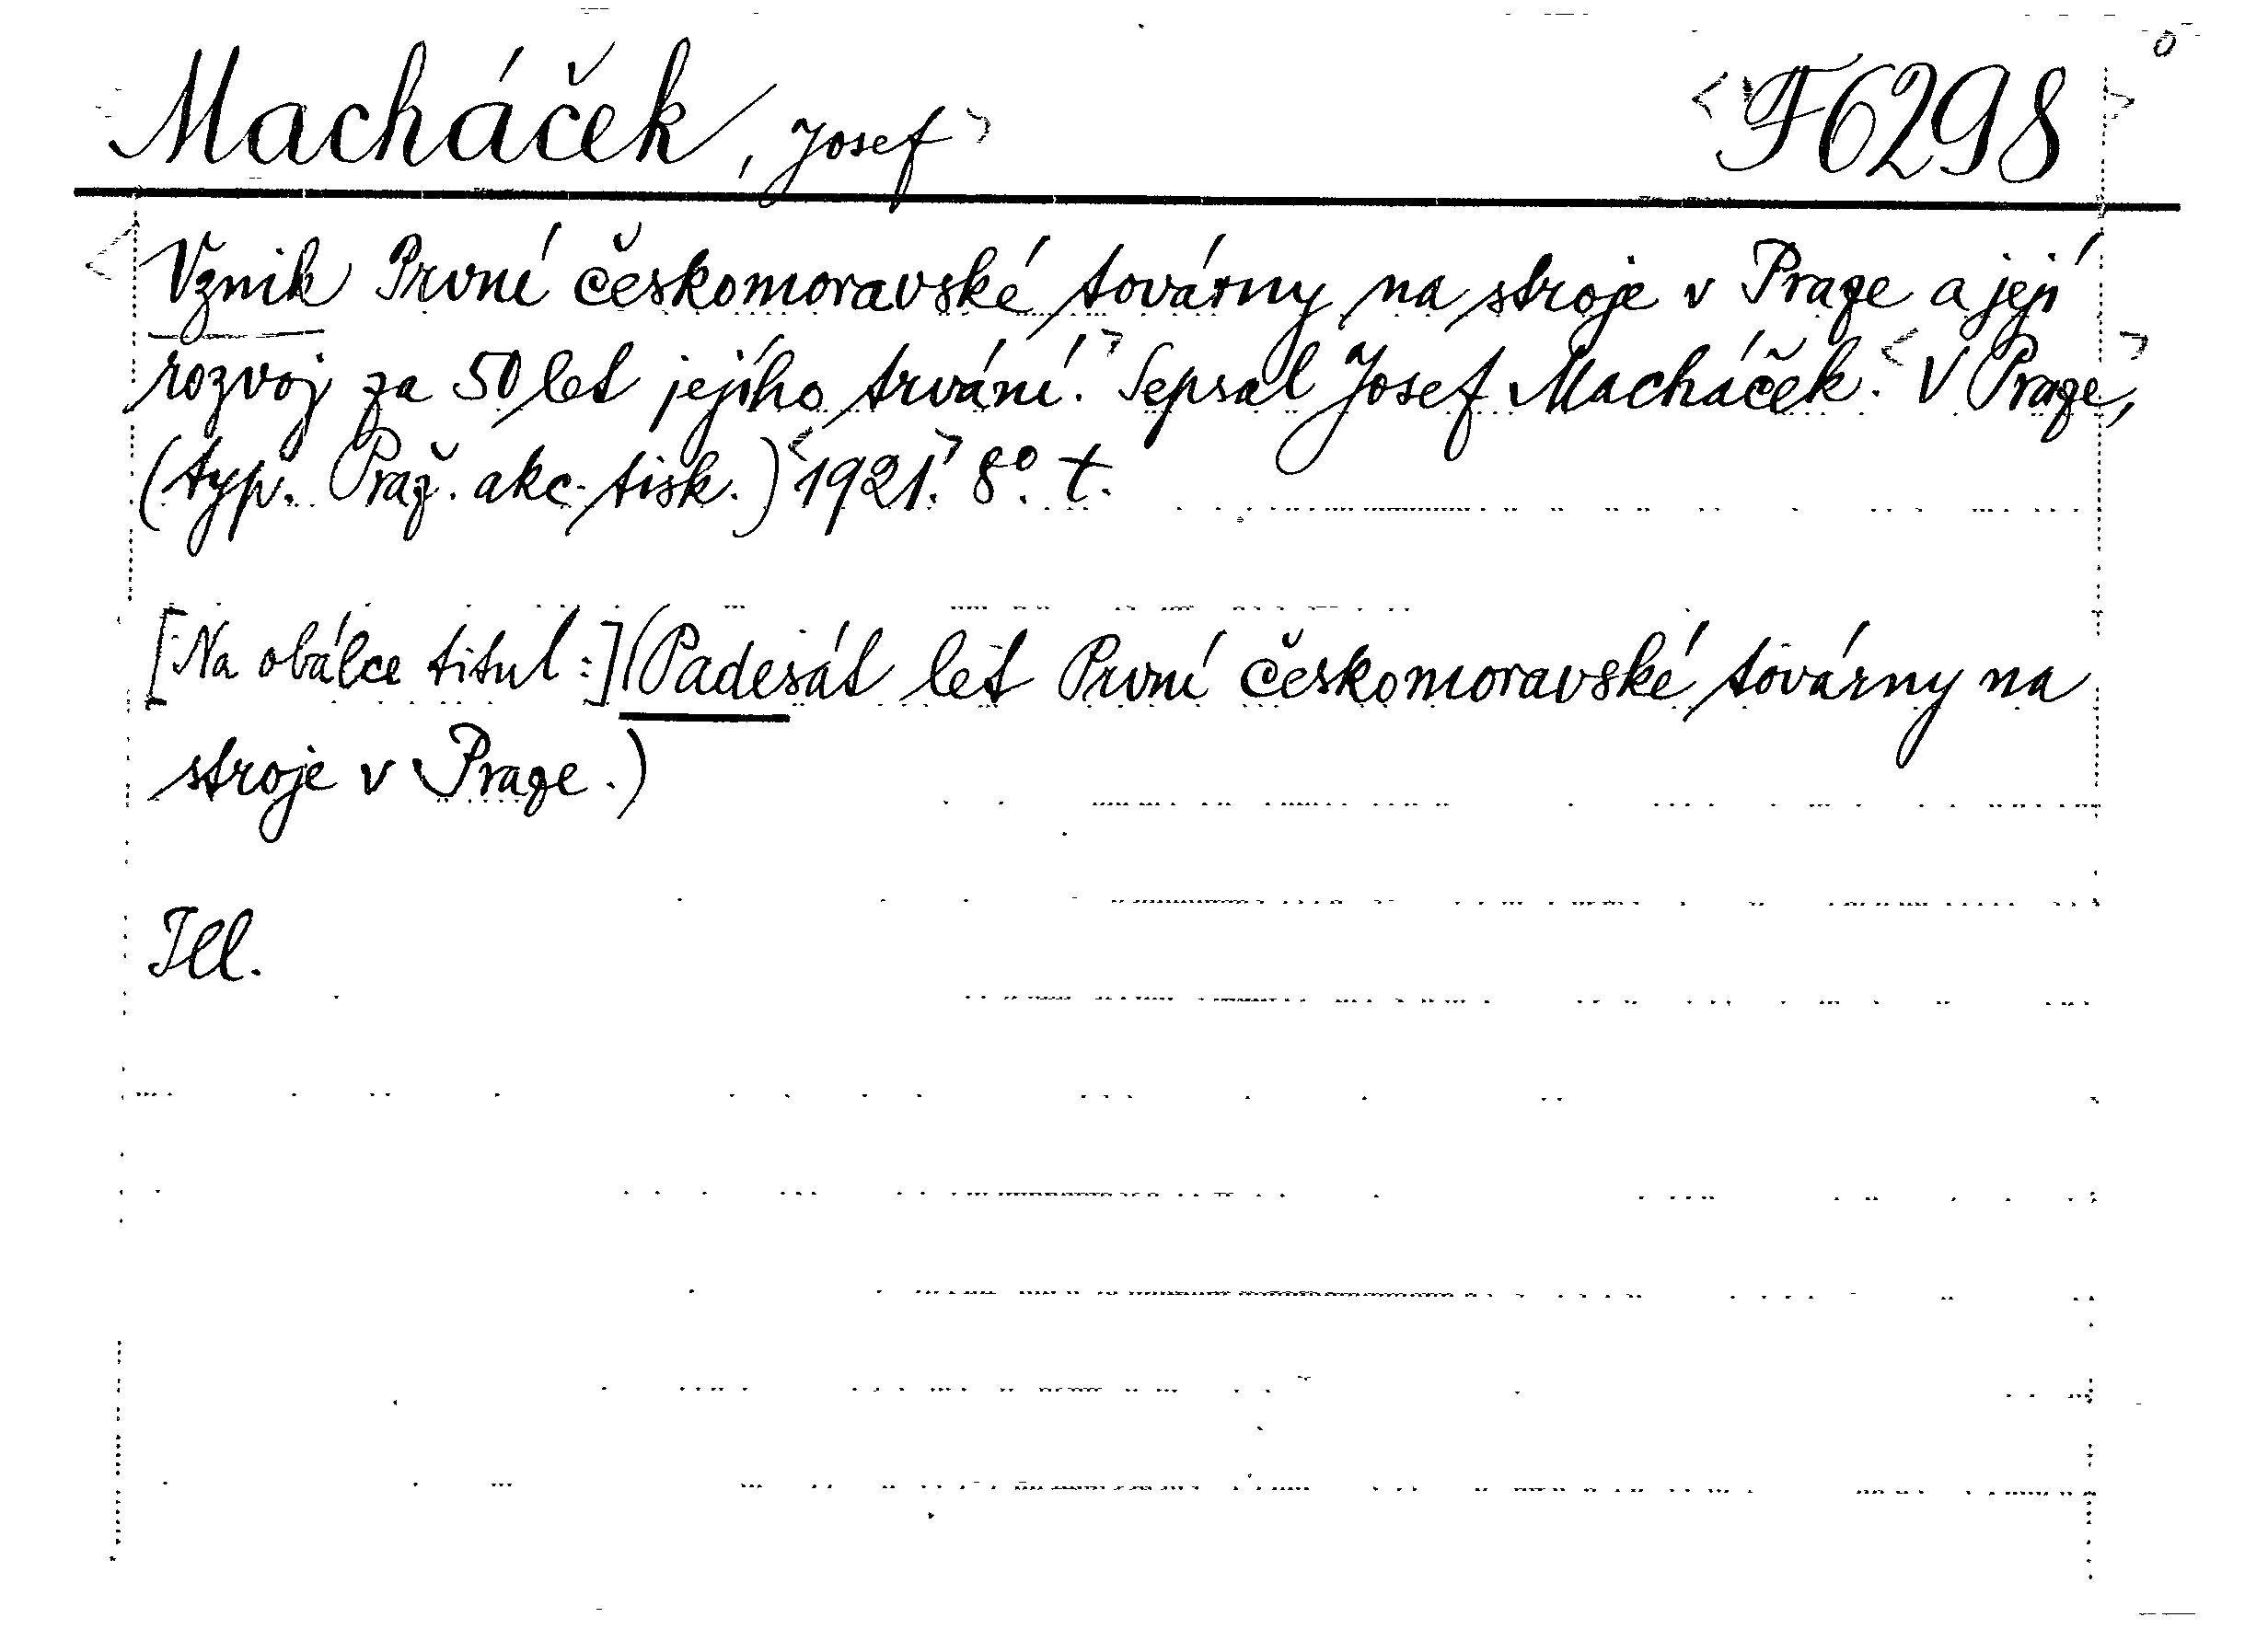 Macháček, Josef F6298
Vznik První českomoravské továrny na stroje v Praze a její
rozvoj za 50 let jejího trvání. Sepsal Josef Macháček. V Praze,
(typ. Praž. akc. tisk.) 1921. 8°. t.
[Na obálce titul:] (Padesát let První českomoravské továrny na
stroje v Praze.)
Ill.